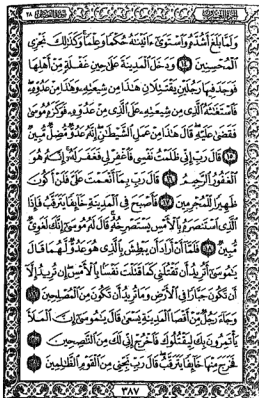 وَلَمَّا بَلَغَ أَشُدَّهُۥ وَٱسْتَوَىٰٓ ءَاتَيْنَٰهُ حُكْمًا وَعِلْمًا وَكَذَٰلِكَ نَجْزِى
ٱلْمُحْسِنِينَ ١٤ وَدَخَلَ ٱلْمَدِينَةَ عَلَىٰ حِينِ غَفْلَةٍ مِّنْ أَهْلِهَا
فَوَجَدَ فِيهَا رَجُلَيْنِ يَقْتَتِلَانِ هَٰذَا مِن شِيعَتِهِۦ وَهَٰذَا مِنْ عَدُوِّهِۦ
فَٱسْتَغَٰثَهُ ٱلَّذِى مِن شِيعَتِهِۦ عَلَى ٱلَّذِى مِنْ عَدُوِّهِۦ فَوَكَزَهُۥ مُوسَىٰ
فَقَضَىٰ عَلَيْهِ قَالَ هَٰذَا مِنْ عَمَلِ ٱلشَّيْطَٰنِ إِنَّهُۥ عَدُوٌّ مُّضِلٌّ مُّبِينٌ
١٥ قَالَ رَبِّ إِنِّى ظَلَمْتُ نَفْسِى فَٱغْفِرْ لِى فَغَفَرَ لَهُۥٓ إِنَّهُۥ هُوَ
ٱلْغَفُورُ ٱلرَّحِيمُ ١٦ قَالَ رَبِّ بِمَآ أَنْعَمْتَ عَلَىَّ فَلَنْ أَكُونَ
ظَهِيرًا لِّلْمُجْرِمِينَ ١٧ فَأَصْبَحَ فِى ٱلْمَدِينَةِ خَآئِفًا يَتَرَقَّبُ فَإِذَا
ٱلَّذِى ٱسْتَنصَرَهُۥ بِٱلْأَمْسِ يَسْتَصْرِخُهُۥ قَالَ لَهُۥ مُوسَىٰٓ إِنَّكَ لَغَوِىٌّ
مُّبِينٌ ١٨ فَلَمَّآ أَنْ أَرَادَ أَن يَبْطِشَ بِٱلَّذِى هُوَ عَدُوٌّ لَّهُمَا قَالَ
يَٰمُوسَىٰٓ أَتُرِيدُ أَن تَقْتُلَنِى كَمَا قَتَلْتَ نَفْسًۢا بِٱلْأَمْسِ إِن تُرِيدُ إِلَّآ
أَن تَكُونَ جَبَّارًا فِى ٱلْأَرْضِ وَمَا تُرِيدُ أَن تَكُونَ مِنَ ٱلْمُصْلِحِينَ ١٩
وَجَآءَ رَجُلٌ مِّنْ أَقْصَا ٱلْمَدِينَةِ يَسْعَىٰ قَالَ يَٰمُوسَىٰٓ إِنَّ ٱلْمَلَأَ
يَأْتَمِرُونَ بِكَ لِيَقْتُلُوكَ فَٱخْرُجْ إِنِّى لَكَ مِنَ ٱلنَّٰصِحِينَ ٢٠
فَخَرَجَ مِنْهَا خَآئِفًا يَتَرَقَّبُ قَالَ رَبِّ نَجِّنِى مِنَ ٱلْقَوْمِ ٱلظَّٰلِمِينَ ٢١
٣٨٧